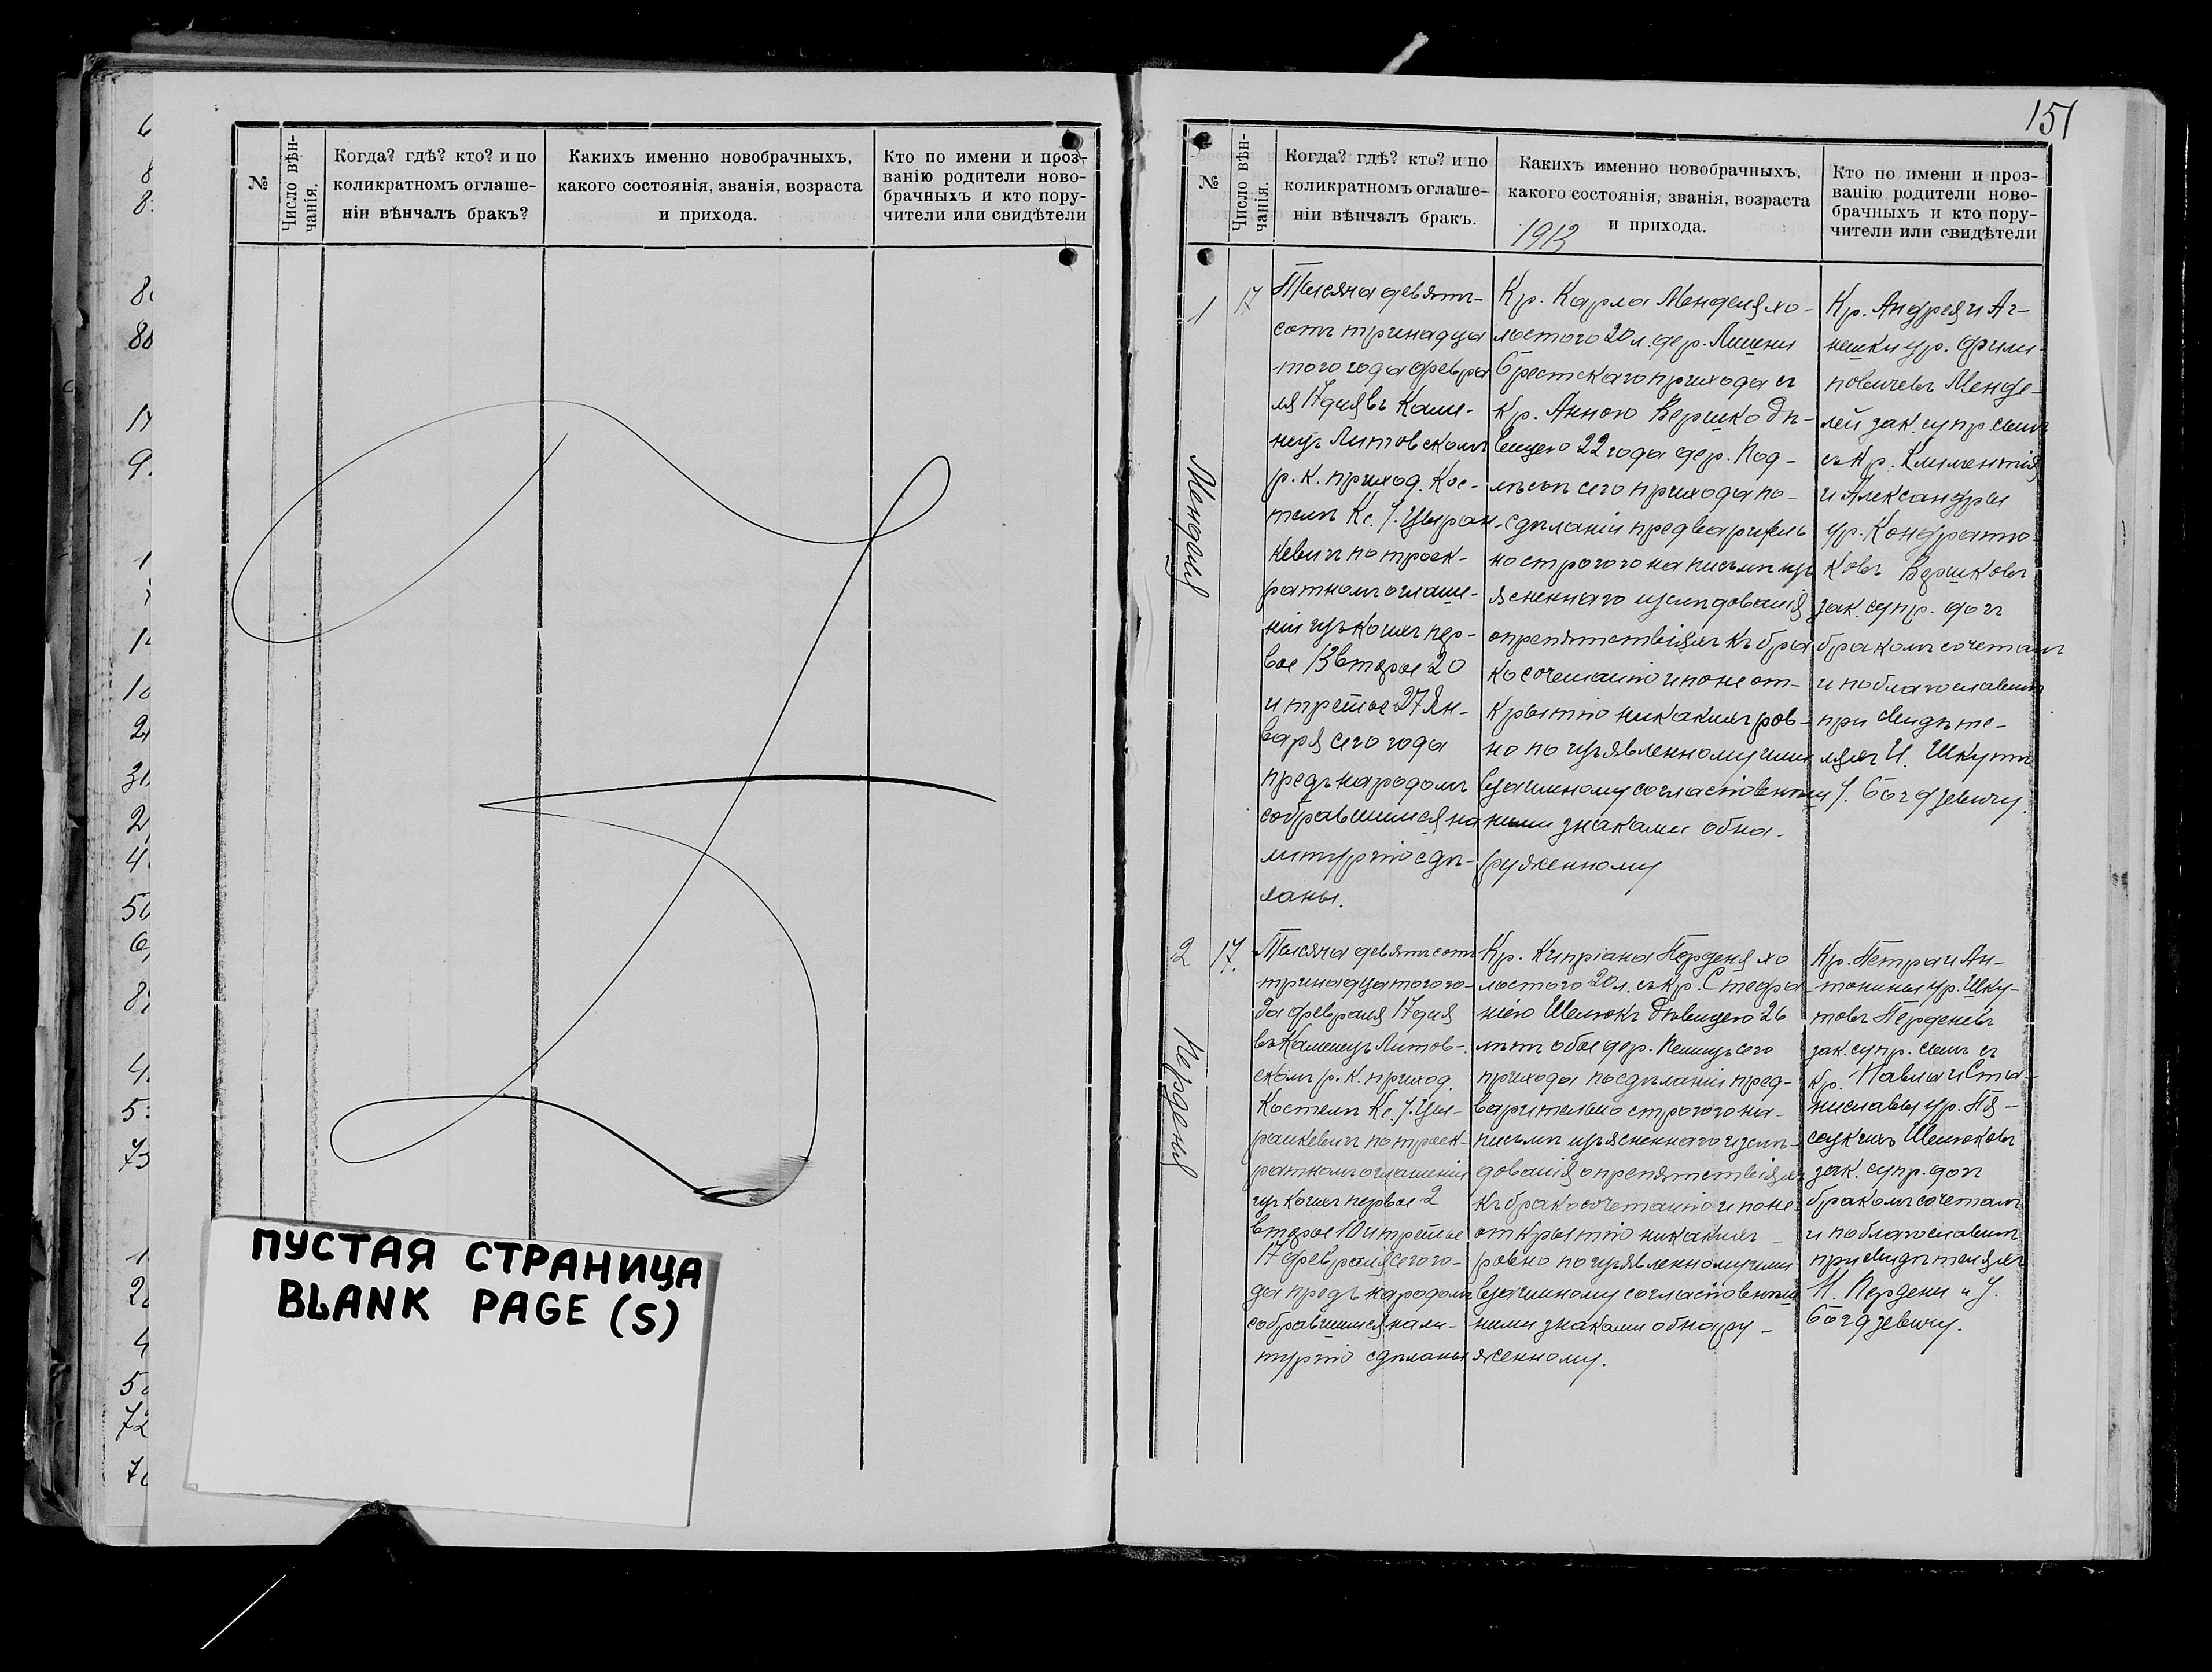 №
Число вѣн-
чанія.
Когда? гдѣ? кто? и по
коликратномъ оглаше-
ніи вѣнчалъ бракъ?
Какихъ именно новобрачныхъ,
какого состоянія, званія, возраста
и прихода.
Кто по имени и проз-
ванію родители ново-
брачныхъ и кто пору-
чители или свидѣтели
ПУСТАЯ СТРАНИЦА
BLANK PAGE (S)
151
№
Число вѣн-
чанія.
Когда? гдѣ? кто? и по
коликратномъ оглаше-
ніи вѣнчалъ бракъ.
Какихъ именно новобрачныхъ,
какого состоянія, званія, возраста
и прихода.
1913
Кто по имени и проз-
ванію родители ново-
брачныхъ и кто пору-
чители или свидѣтели
1
Менделя
17
Тысяча девять-
сотъ тринадца
того года февра
ля 17 дня въ Каме-
нецъ Литовскомъ
р. к. приход. Кос-
телѣ Кс. І. Цыран-
кевичъ по троек-
ратномъ оглаше-
ніи изъ коихъ пер-
вое 13 второе 20
и третье 27 Ян-
варя сего года
предъ народомъ
собравшимся на
литургію сдѣ-
ланы.
Кр. Карла Менделя хо-
лостого 20 л. дер.
Брестскаго прихода съ
Кр. Анною Вершко дѣ-
вицею 22 года дер. Под-
лѣсье сего прихода по-
сдѣланіи предваритель
но строгого на письмѣ изъ
ясненнаго изслѣдованія
о препятствіяхъ къ бра
косочетанію и по не от-
крытію никакихъ ров-
но по изъявленному ими
взаимному согласію внѣш
ними знаками обна-
руженному
Кр. Андрея и Аг-
нешки ур. Фили-
повичевъ Менде-
лей зак. супр. сынъ
съ Кр. Климентія
и Александры
ур. Кондратю-
ковъ Вершковъ
зак. супр. доч
бракомъ сочеталъ
и поблагословилъ
при свидѣте-
ляхъ И. Шкутѣ
І. Богдзевичу.
2
Перденя
17.
Тысяча девятьсотъ
тринадцатого го-
да февраля 17 дня
въ Каменецъ Литов-
скомъ р. к. приход.
Костелѣ Кс. І. Цы-
ранкевичъ по троек-
ратномъ оглашеніи
изъ коихъ первое 2
второе 10 и третье
17 февраля сего го-
да предъ народомъ
собравшимся на ли-
тургію сдѣланы
Кр. Кипріана Перденя хо
лостого 20 л. съ Кр. Стефа-
ніею Шелюкъ дѣвицею 26
лѣтъ обое дер. сего
прихода по сдѣланіи пред-
варительно строгого на-
письмѣ изъясненнаго изслѣ-
дованія о препятствіяхъ
къ бракосочетанію и по не-
открытію никакихъ
ровно по изъявленному ими
взаимному согласію внѣш
ними знаками обнару-
женному.
Кр. Петра и Ан-
тонины ур. Шку-
товъ Перденевъ
зак. супр. сынъ съ
Кр. Павла и Ста-
ниславы ур.
Шелюковъ
зак. супр. доч
бракомъ сочеталъ
и поблагословилъ
при свидѣтеляхъ
И. Пердени и І.
Богдзевичу.